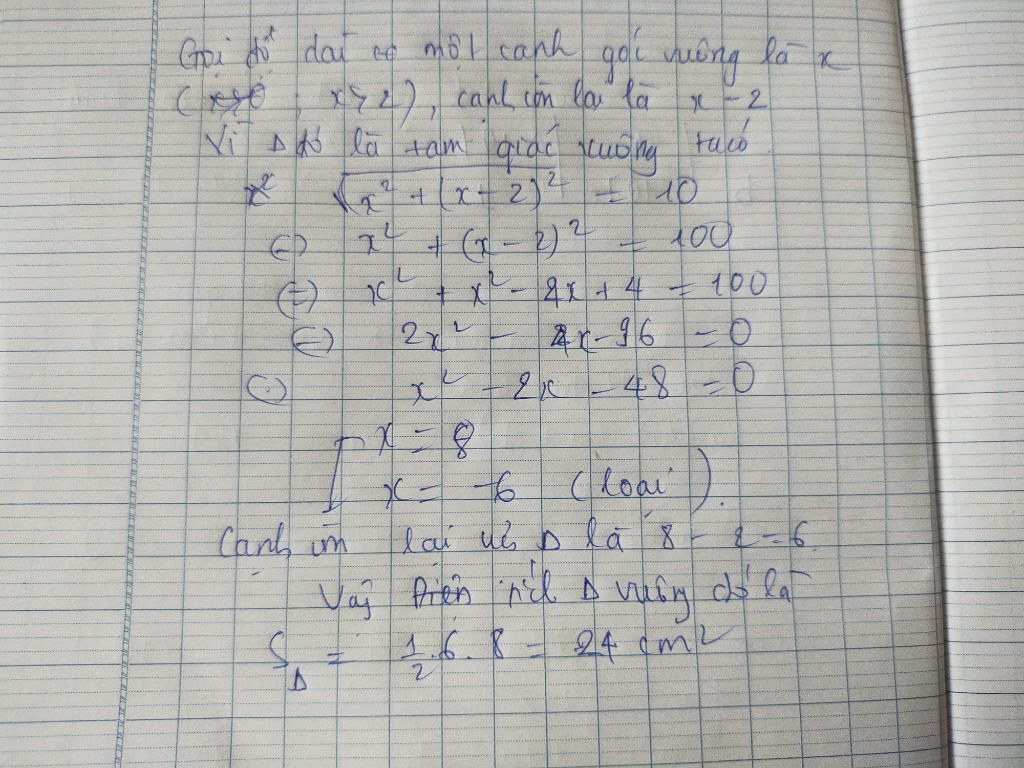 Gọi độ dài cạ một cạnh gói vuông là x
( x>0 ; x>2), cạnh còn lại là x - 2
Vì Δ đó là tam giác vuông ta có
x² √x² + (x - 2)² = 10
⇔ x² + (x - 2)² = 100
⇔ x² + x² - 4x + 4 = 100
⇔ 2x² - 4x - 96 = 0
⇔ x² - 2x - 48 = 0
[ x = 8
x = -6 (loại).
Cạnh còn lại của Δ là 8 - 2 = 6
Vậy diện tích Δ vuông đó là
S_Δ = 1/2 . 6 . 8 = 24 cm²